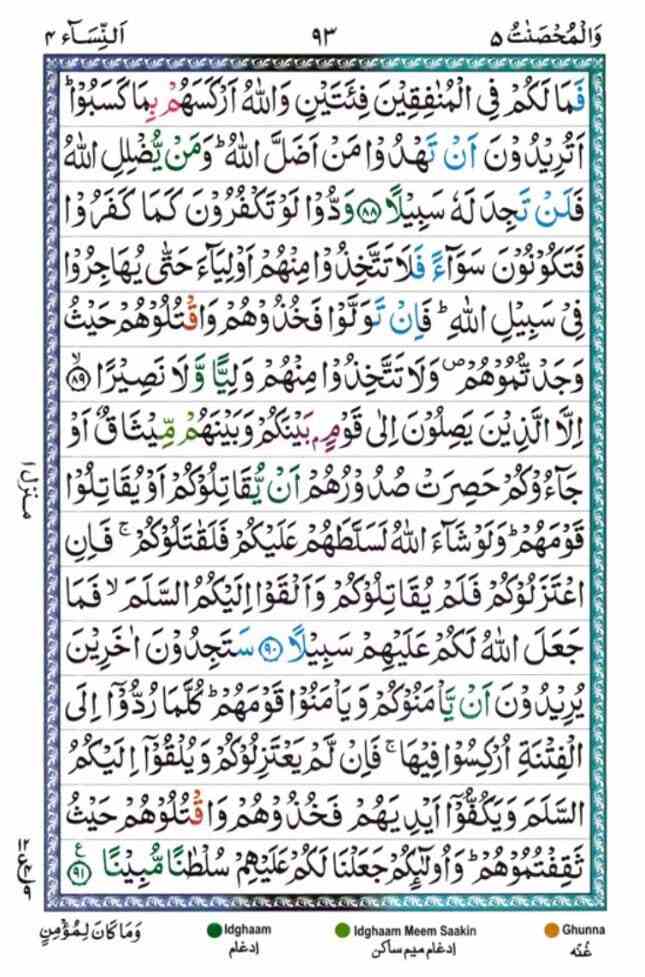 وَالْمُحْصَنٰتُ ٥
٩٣
اَلنِّسَآء ٤
فَمَا لَكُمْ فِی الْمُنٰفِقِیْنَ فِئَتَیْنِ وَاللّٰهُ اَرْكَسَهُمْ بِمَا كَسَبُوْا ؕ
اَتُرِیْدُوْنَ اَنْ تَهْدُوْا مَنْ اَضَلَّ اللّٰهُ ؕ وَمَنْ یُّضْلِلِ اللّٰهُ
فَلَنْ تَجِدَ لَهٗ سَبِیْلًا ﴿۸۸﴾ وَدُّوْا لَوْ تَكْفُرُوْنَ كَمَا كَفَرُوْا
فَتَكُوْنُوْنَ سَوَآءً فَلَا تَتَّخِذُوْا مِنْهُمْ اَوْلِیَآءَ حَتّٰی یُهَاجِرُوْا
فِیْ سَبِیْلِ اللّٰهِ ؕ فَاِنْ تَوَلَّوْا فَخُذُوْهُمْ وَاقْتُلُوْهُمْ حَیْثُ
وَجَدْتُّمُوْهُمْ ۪ وَلَا تَتَّخِذُوْا مِنْهُمْ وَلِیًّا وَّلَا نَصِیْرًا ﴿۸۹﴾ ۙ
اِلَّا الَّذِیْنَ یَصِلُوْنَ اِلٰی قَوْمٍۭ بَیْنَكُمْ وَبَیْنَهُمْ مِّیْثَاقٌ اَوْ
جَآءُوْكُمْ حَصِرَتْ صُدُوْرُهُمْ اَنْ یُّقَاتِلُوْكُمْ اَوْ یُقَاتِلُوْا
قَوْمَهُمْ ؕ وَلَوْ شَآءَ اللّٰهُ لَسَلَّطَهُمْ عَلَیْكُمْ فَلَقٰتَلُوْكُمْ ۚ فَاِنِ
اعْتَزَلُوْكُمْ فَلَمْ یُقَاتِلُوْكُمْ وَاَلْقَوْا اِلَیْكُمُ السَّلَمَ ۙ فَمَا
جَعَلَ اللّٰهُ لَكُمْ عَلَیْهِمْ سَبِیْلًا ﴿۹۰﴾ سَتَجِدُوْنَ اٰخَرِیْنَ
یُرِیْدُوْنَ اَنْ یَّاْمَنُوْكُمْ وَیَاْمَنُوْا قَوْمَهُمْ ؕ كُلَّمَا رُدُّوْۤا اِلَی
الْفِتْنَةِ اُرْكِسُوْا فِیْهَا ۚ فَاِنْ لَّمْ یَعْتَزِلُوْكُمْ وَیُلْقُوْۤا اِلَیْكُمُ
السَّلَمَ وَیَكُفُّوْۤا اَیْدِیَهُمْ فَخُذُوْهُمْ وَاقْتُلُوْهُمْ حَیْثُ
ثَقِفْتُمُوْهُمْ ؕ وَاُولٰٓئِكُمْ جَعَلْنَا لَكُمْ عَلَیْهِمْ سُلْطٰنًا مُّبِیْنًا ﴿۹۱﴾ ع
منزل ١
١٢
ع
٤
٩
Ghunna
غُنّه
Idghaam Meem Saakin
إدغام ميم ساكن
Idghaam
إدغام
وَمَا كَانَ لِمُؤْمِنٍ